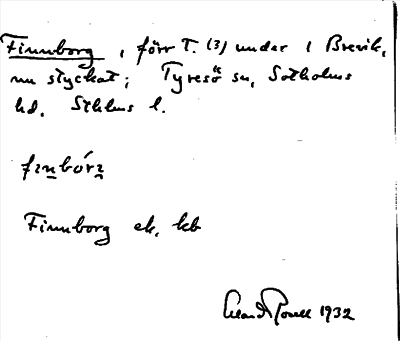 Finnborg, förr T. (3) under 1 Brevik,
nu styckat; Tyresö sn, Sotholms
hd. Sthlms l.
fınbórı
Finnborg ek. kb
1932